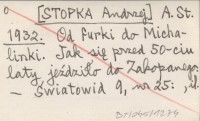 [STOPKA Andrzej] A. St.
1932. Od furki do Micha-
linki. Jak się przed 50-ciu
laty jeździło do Zakopanego.
– Światowid 9, nr 25: , il.